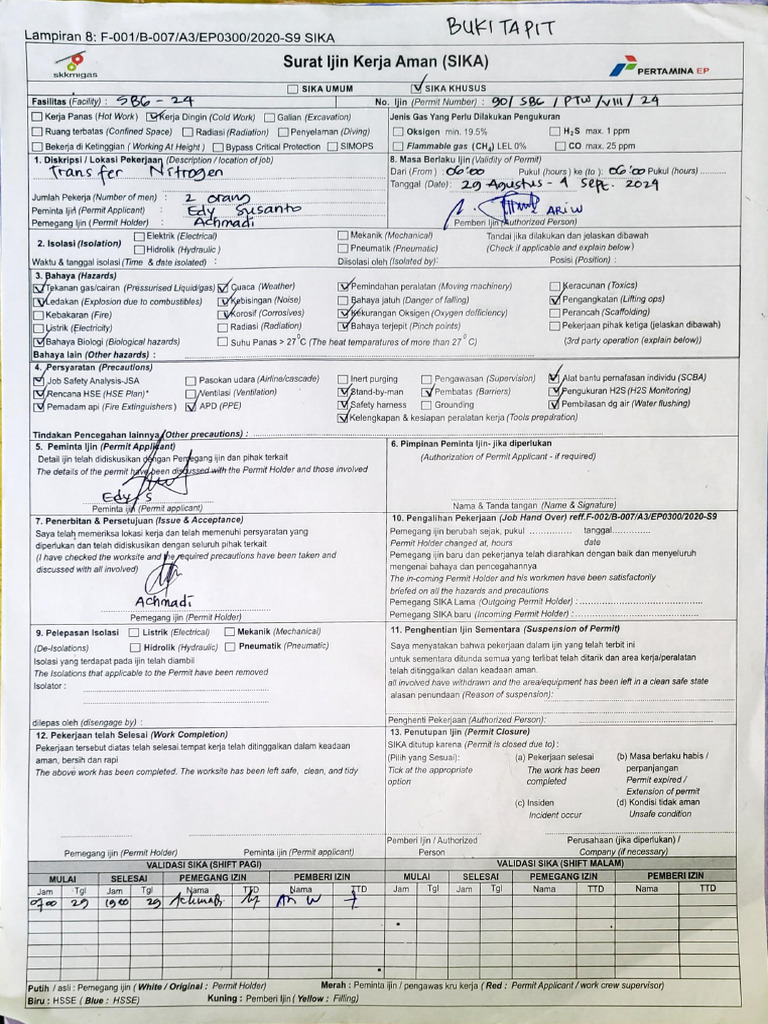 Lampiran 8: F-001/B-007/A3/EP0300/2020-S9 SIKA
BUKITAPIT
skkmigas
Surat Ijin Kerja Aman (SIKA)
PERTAMINA EP
SIKA UMUM SIKA KHUSUS
Fasilitas (Facility) : SBG - 24 No. Ijin (Permit Number) : 90/ SBG / PTW/VIII / 24
Kerja Panas (Hot Work) Kerja Dingin (Cold Work) Galian (Excavation)
Ruang terbatas (Confined Space) Radiasi (Radiation) Penyelaman (Diving)
Bekerja di Ketinggian (Working At Height) Bypass Critical Protection SIMOPS
Jenis Gas Yang Perlu Dilakukan Pengukuran
Oksigen min. 19.5% H₂S max. 1 ppm
Flammable gas (CH₄) LEL 0% CO max. 25 ppm
1. Diskripsi / Lokasi Pekerjaan (Description / location of job)
Transfer Nitrogen
Jumlah Pekerja (Number of men) : 2 orang
Peminta Ijin (Permit Applicant) : Edy Susanto
Pemegang Ijin (Permit Holder) : Achmadi
8. Masa Berlaku Ijin (Validity of Permit)
Dari (From) : 06:00 Pukul (hours) ke (to) : 06:00 Pukul (hours)
Tanggal (Date): 29 Agustus - 1 Sept. 2024
ARI W
Pemberi Ijin (Authorized Person)
2. Isolasi (Isolation)
Elektrik (Electrical) Mekanik (Mechanical) Tandai jika dilakukan dan jelaskan dibawah
Hidrolik (Hydraulic ) Pneumatik (Pneumatic) (Check if applicable and explain below)
Waktu & tanggal isolasi (Time & date isolated) : Diisolasi oleh (Isolated by): Posisi (Position) :
3. Bahaya (Hazards)
Tekanan gas/cairan (Pressurised Liquid/gas) Cuaca (Weather) Pemindahan peralatan (Moving machinery) Keracunan (Toxics)
Ledakan (Explosion due to combustibles) Kebisingan (Noise) Bahaya jatuh (Danger of falling) Pengangkatan (Lifting ops)
Kebakaran (Fire) Korosif (Corrosives) Kekurangan Oksigen (Oxygen defficiency) Perancah (Scaffolding)
Listrik (Electricity) Radiasi (Radiation) Bahaya terjepit (Pinch points) Pekerjaan pihak ketiga (jelaskan dibawah)
Bahaya Biologi (Biological hazards) Suhu Panas > 27⁰C (The heat temparatures of more than 27⁰C) (3rd party operation (explain below))
Bahaya lain (Other hazards) :
4. Persyaratan (Precautions)
Job Safety Analysis-JSA Pasokan udara (Airline/cascade) Inert purging Pengawasan (Supervision) Alat bantu pernafasan individu (SCBA)
Rencana HSE (HSE Plan)* Ventilasi (Ventilation) Stand-by-man Pembatas (Barriers) Pengukuran H2S (H2S Monitoring)
Pemadam api (Fire Extinguishers ) APD (PPE) Safety harness Grounding Pembilasan dg air (Water flushing)
Kelengkapan & kesiapan peralatan kerja (Tools preparation)
Tindakan Pencegahan lainnya (Other precautions) :
5. Peminta Ijin (Permit Applicant)
Detail ijin telah didiskusikan dengan Pemegang ijin dan pihak terkait
The details of the permit have been discussed with the Permit Holder and those involved
Edy S
Peminta ijin (Permit applicant)
6. Pimpinan Peminta Ijin- jika diperlukan
(Authorization of Permit Applicant - if required)
Nama & Tanda tangan (Name & Signature)
7. Penerbitan & Persetujuan (Issue & Acceptance)
Saya telah memeriksa lokasi kerja dan telah memenuhi persyaratan yang
diperlukan dan telah didiskusikan dengan seluruh pihak terkait
(I have checked the worksite and the required precautions have been taken and
discussed with all involved)
Achmadi
Pemegang ijin (Permit Holder)
10. Pengalihan Pekerjaan (Job Hand Over) reff.F-002/B-007/A3/EP0300/2020-S9
Pemegang ijin berubah sejak, pukul .............. tanggal.............
Permit Holder changed at, hours date
Pemegang ijin baru dan pekerjanya telah diarahkan dengan baik dan menyeluruh
mengenai bahaya dan pencegahannya
The in-coming Permit Holder and his workmen have been satisfactorily
briefed on all the hazards and precautions
Pemegang SIKA Lama (Outgoing Permit Holder) :
Pemegang SIKA baru (Incoming Permit Holder) :
9. Pelepasan Isolasi Listrik (Electrical) Mekanik (Mechanical)
(De-Isolations) Hidrolik (Hydraulic) Pneumatik (Pneumatic)
Isolasi yang terdapat pada ijin telah diambil
The Isolations that applicable to the Permit have been removed
Isolator :
dilepas oleh (disengage by) :
11. Penghentian Ijin Sementara (Suspension of Permit)
Saya menyatakan bahwa pekerjaan dalam ijin yang telah terbit ini
untuk sementara ditunda semua yang terlibat telah ditarik dan area kerja/peralatan
telah ditinggalkan dalan keadaan aman.
all involved have withdrawn and the area/equipment has been left in a clean safe state
alasan penundaan (Reason of suspension):
Penghenti Pekerjaan (Authorized Person):
12. Pekerjaan telah Selesai (Work Completion)
Pekerjaan tersebut diatas telah selesai.tempat kerja telah ditinggalkan dalam keadaan
aman, bersih dan rapi
The above work has been completed. The worksite has been left safe, clean, and tidy
Pemegang ijin (Permit Holder) Peminta ijin (Permit applicant)
13. Penutupan Ijin (Permit Closure)
SIKA ditutup karena (Permit is closed due to) :
(Pilih yang Sesuai): (a) Pekerjaan selesai (b) Masa berlaku habis /
Tick at the appropriate The work has been perpanjangan
option completed Permit expired /
Extension of permit
(c) Insiden (d) Kondisi tidak aman
Incident occur Unsafe condition
Pemberi Ijin / Authorized Perusahaan (jika diperlukan) /
Person Company (if necessary)
VALIDASI SIKA (SHIFT PAGI) VALIDASI SIKA (SHIFT MALAM)
MULAI SELESAI PEMEGANG IZIN PEMBERI IZIN MULAI SELESAI PEMEGANG IZIN PEMBERI IZIN
Jam Tgl Jam Tgl Nama TTD Nama TTD Jam Tgl Jam Tgl Nama TTD Nama TTD
0700 29 1900 29 Achmadi Ari W
Putih / asli : Pemegang ijin ( White / Original : Permit Holder) Merah : Peminta ijin / pengawas kru kerja ( Red : Permit Applicant / work crew supervisor)
Biru : HSSE ( Blue : HSSE) Kuning : Pemberi Ijin ( Yellow : Filling)